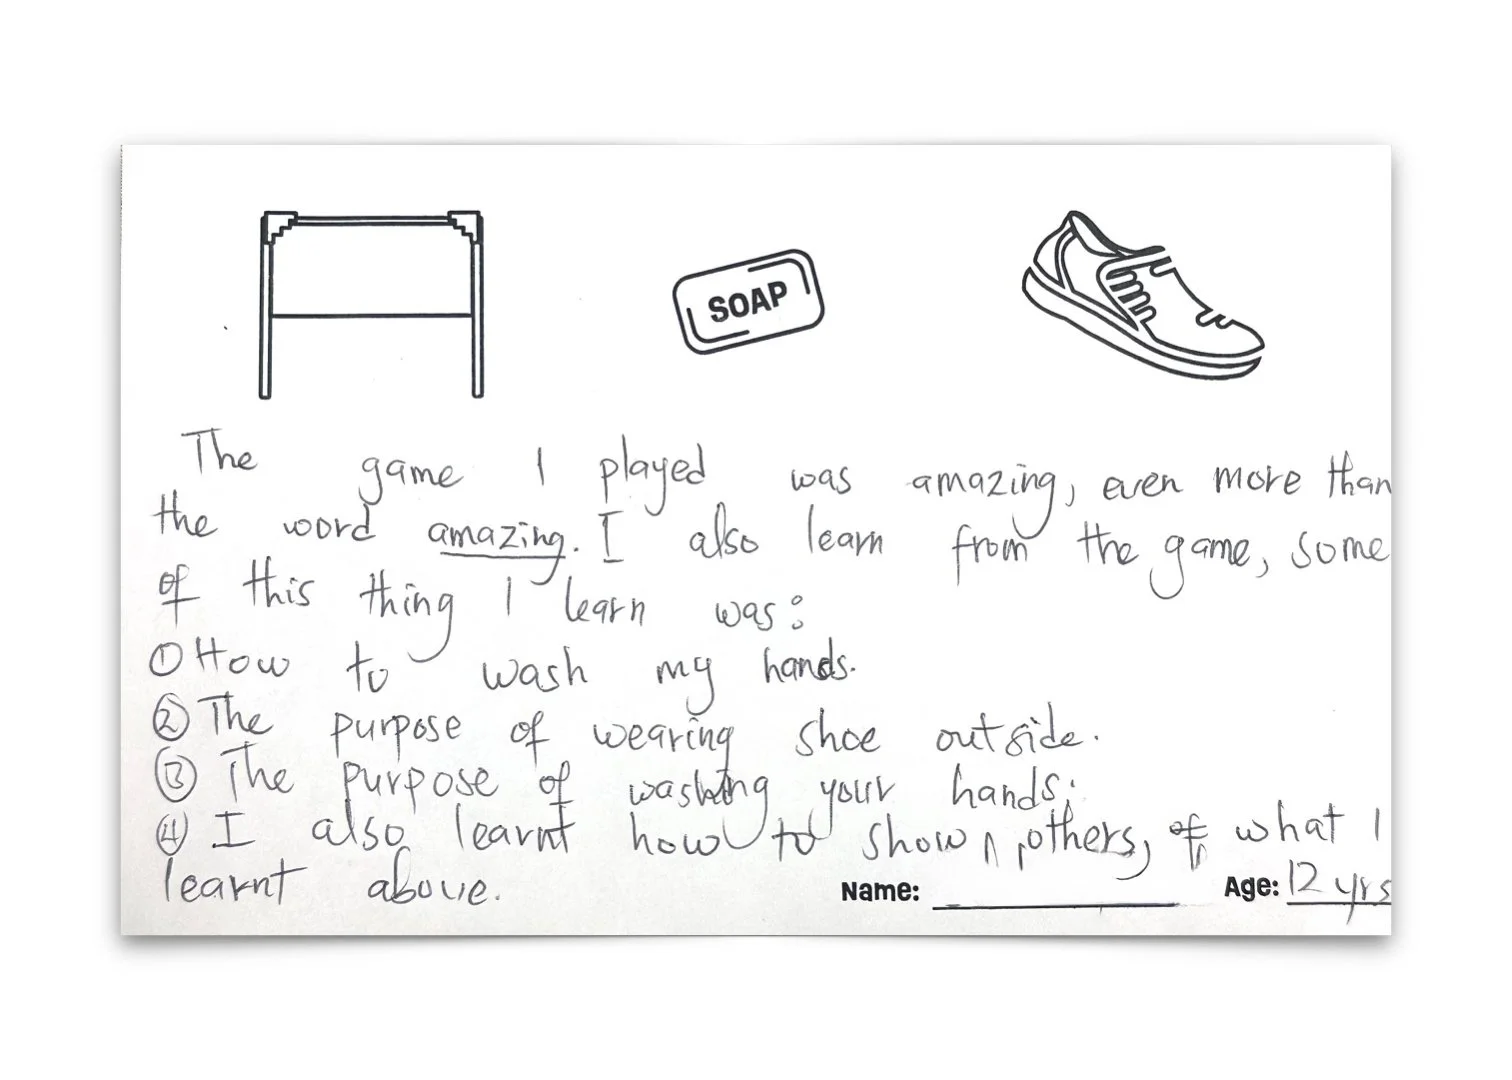 SOAP
The game I played was amazing, even more than
the word amazing. I also learn from the game, some
of this thing I learn was:
① How to wash my hands.
② The purpose of wearing shoe outside.
③ The purpose of washing your hands.
④ I also learnt how to show others, of what I
learnt above.
Name: Age: 12 yrs